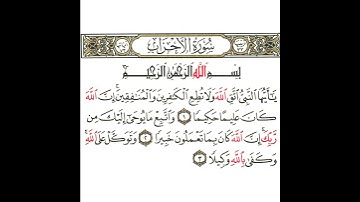 سُورَةُ الأَحْزَابِ
بِسْمِ اللَّهِ الرَّحْمَٰنِ الرَّحِيمِ
يَٰٓأَيُّهَا النَّبِيُّ اتَّقِ اللَّهَ وَلَا تُطِعِ الْكَٰفِرِينَ وَالْمُنَٰفِقِينَ إِنَّ اللَّهَ
كَانَ عَلِيمًا حَكِيمًا ١ وَاتَّبِعْ مَا يُوحَىٰٓ إِلَيْكَ مِن
رَّبِّكَ إِنَّ اللَّهَ كَانَ بِمَا تَعْمَلُونَ خَبِيرًا ٢ وَتَوَكَّلْ عَلَى اللَّهِ
وَكَفَىٰ بِاللَّهِ وَكِيلًا ٣